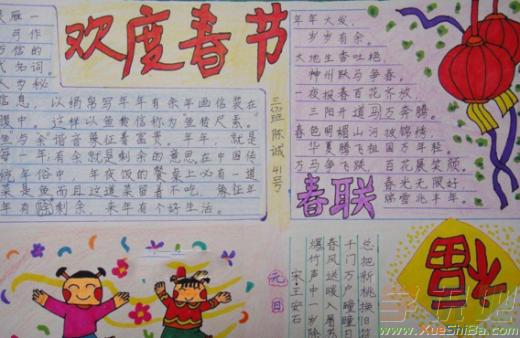 欢度春节
雁一
可作
方信的
代名词。
人为秘
信息，以绢帛写
腹中。这样以鱼传信称为鱼传尺素。
与余谐音象征着富贵。年年，就是
每一年；有余就是剩余的意思。在中国传
统年俗中，年夜饭的餐桌上必有一道
菜是鱼而且这道菜留着不吃。象征年
年有剩余，来年有个好生活。
三班 陈诚 41号
年年大发，
岁岁有余。
大地生香吐艳，
神州跃马争春。
一夜报春百花齐放，
三阳开道万马奔腾。
春色明媚山河披锦绣，
华夏腾飞祖国万年轻。
万马争飞跃，百花展笑颜。
春光无限好，
瑞雪兆丰年。
春联
元日
宋·王安石
爆竹声中一岁除
春风送暖入屠苏
千门万户曈曈日
总把新桃换旧符
福
学识吧
www.XueShiBa.com